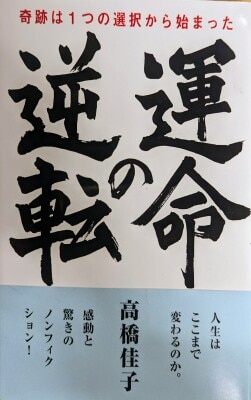 奇跡は1つの選択から始まった
運命
の
逆転
人生は
ここまで
変わるのか。
高橋佳子
感動と
驚きの
ノンフィク
ション！